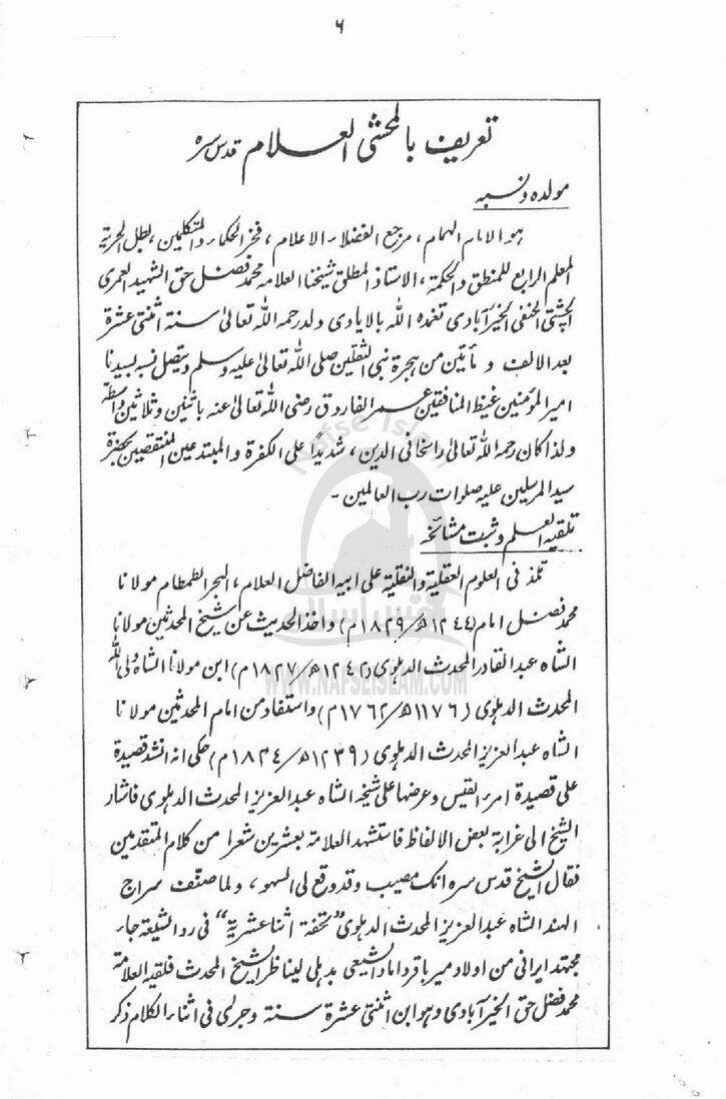 ٦
تعریف بالمحشی العلام قدس سره
مولده ونسبه
ہو الامام الہمام، مرجع الفضلاء الاعلام، فخر الحکماء والمتکلمین، بطل الحریة
المعلم الرابع للمنطق والحکمة، الاستاذ المطلق شیخنا العلامہ محمد فضل حق الشہید العمری
الچشتی الحنفی الخیرآبادی تغمدہ اللہ بالایادی ولد رحمہ اللہ تعالیٰ سنة اثنتی عشرة
بعد الالف و مأتین من ہجرة نبی الثقلین صلی اللہ تعالیٰ علیہ وسلم ویتصل نسبہ بسیدنا
امیر المؤمنین غیظ المنافقین عمر الفاروق رضی اللہ تعالیٰ عنہ باثنین وثلاثین واسطة
ولذا کان رحمہ اللہ تعالیٰ راسخا فی الدین، شدیدا علی الکفرة والمبتدعین المنتقصین بحضرة
سید المرسلین علیہ صلوات رب العالمین -
تلقیہ العلم وثبت مشائخہ
تلمذ فی العلوم العقلیة والنقلیة علی ابیہ الفاضل العلام، البحر الطمطام مولانا
محمد فضل امام (۱۲۴۴ھ/۱۸۲۹م) واخذ الحدیث عن شیخ المحدثین مولانا
الشاہ عبد القادر المحدث الدہلوی (۱۲۴۲ھ/۱۸۲۷م) ابن مولانا الشاہ ولی اللہ
المحدث الدہلوی (۱۱۷۶ھ/۱۷۶۲م) واستفاد من امام المحدثین مولانا
الشاہ عبد العزیز المحدث الدہلوی (۱۲۳۹ھ/۱۸۲۴م) حکی انہ انشد قصیدة
علی قصیدة امرء القیس وعرضہا علی شیخہ الشاہ عبد العزیز المحدث الدہلوی فاشار
الشیخ الی غرابة بعض الالفاظ فاستشہد العلامة بعشرین شعرا من کلام المتقدمین
فقال الشیخ قدس سرہ انک مصیب وقد وقع لی السہو، ولما صنف سراج
الہند الشاہ عبد العزیز المحدث الدہلوی "تحفة اثنا عشریة" فی رد الشیعة جاء
مجتہد ایرانی من اولاد میر باقر داماد الشیعی بدہلی لیناظر الشیخ المحدث فلقیہ العلامة
محمد فضل حق الخیرآبادی وہو ابن اثنتی عشرة سنة وجری فی اثناء الکلام ذکر
Nafse Islam
نفس اسلام
WWW.NAFSEISLAM.COM